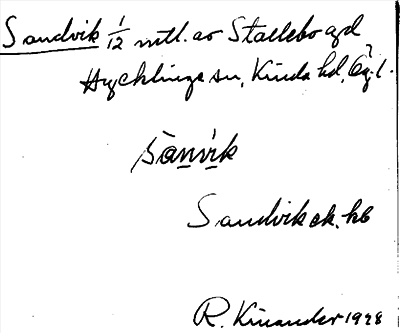 Sandvik 1/12 mtl. av Stallebo gd
Hycklinge sn, Kinda hd, Ög. l.
sànvik
Sandvik ek. kb
R. Kinander 1928